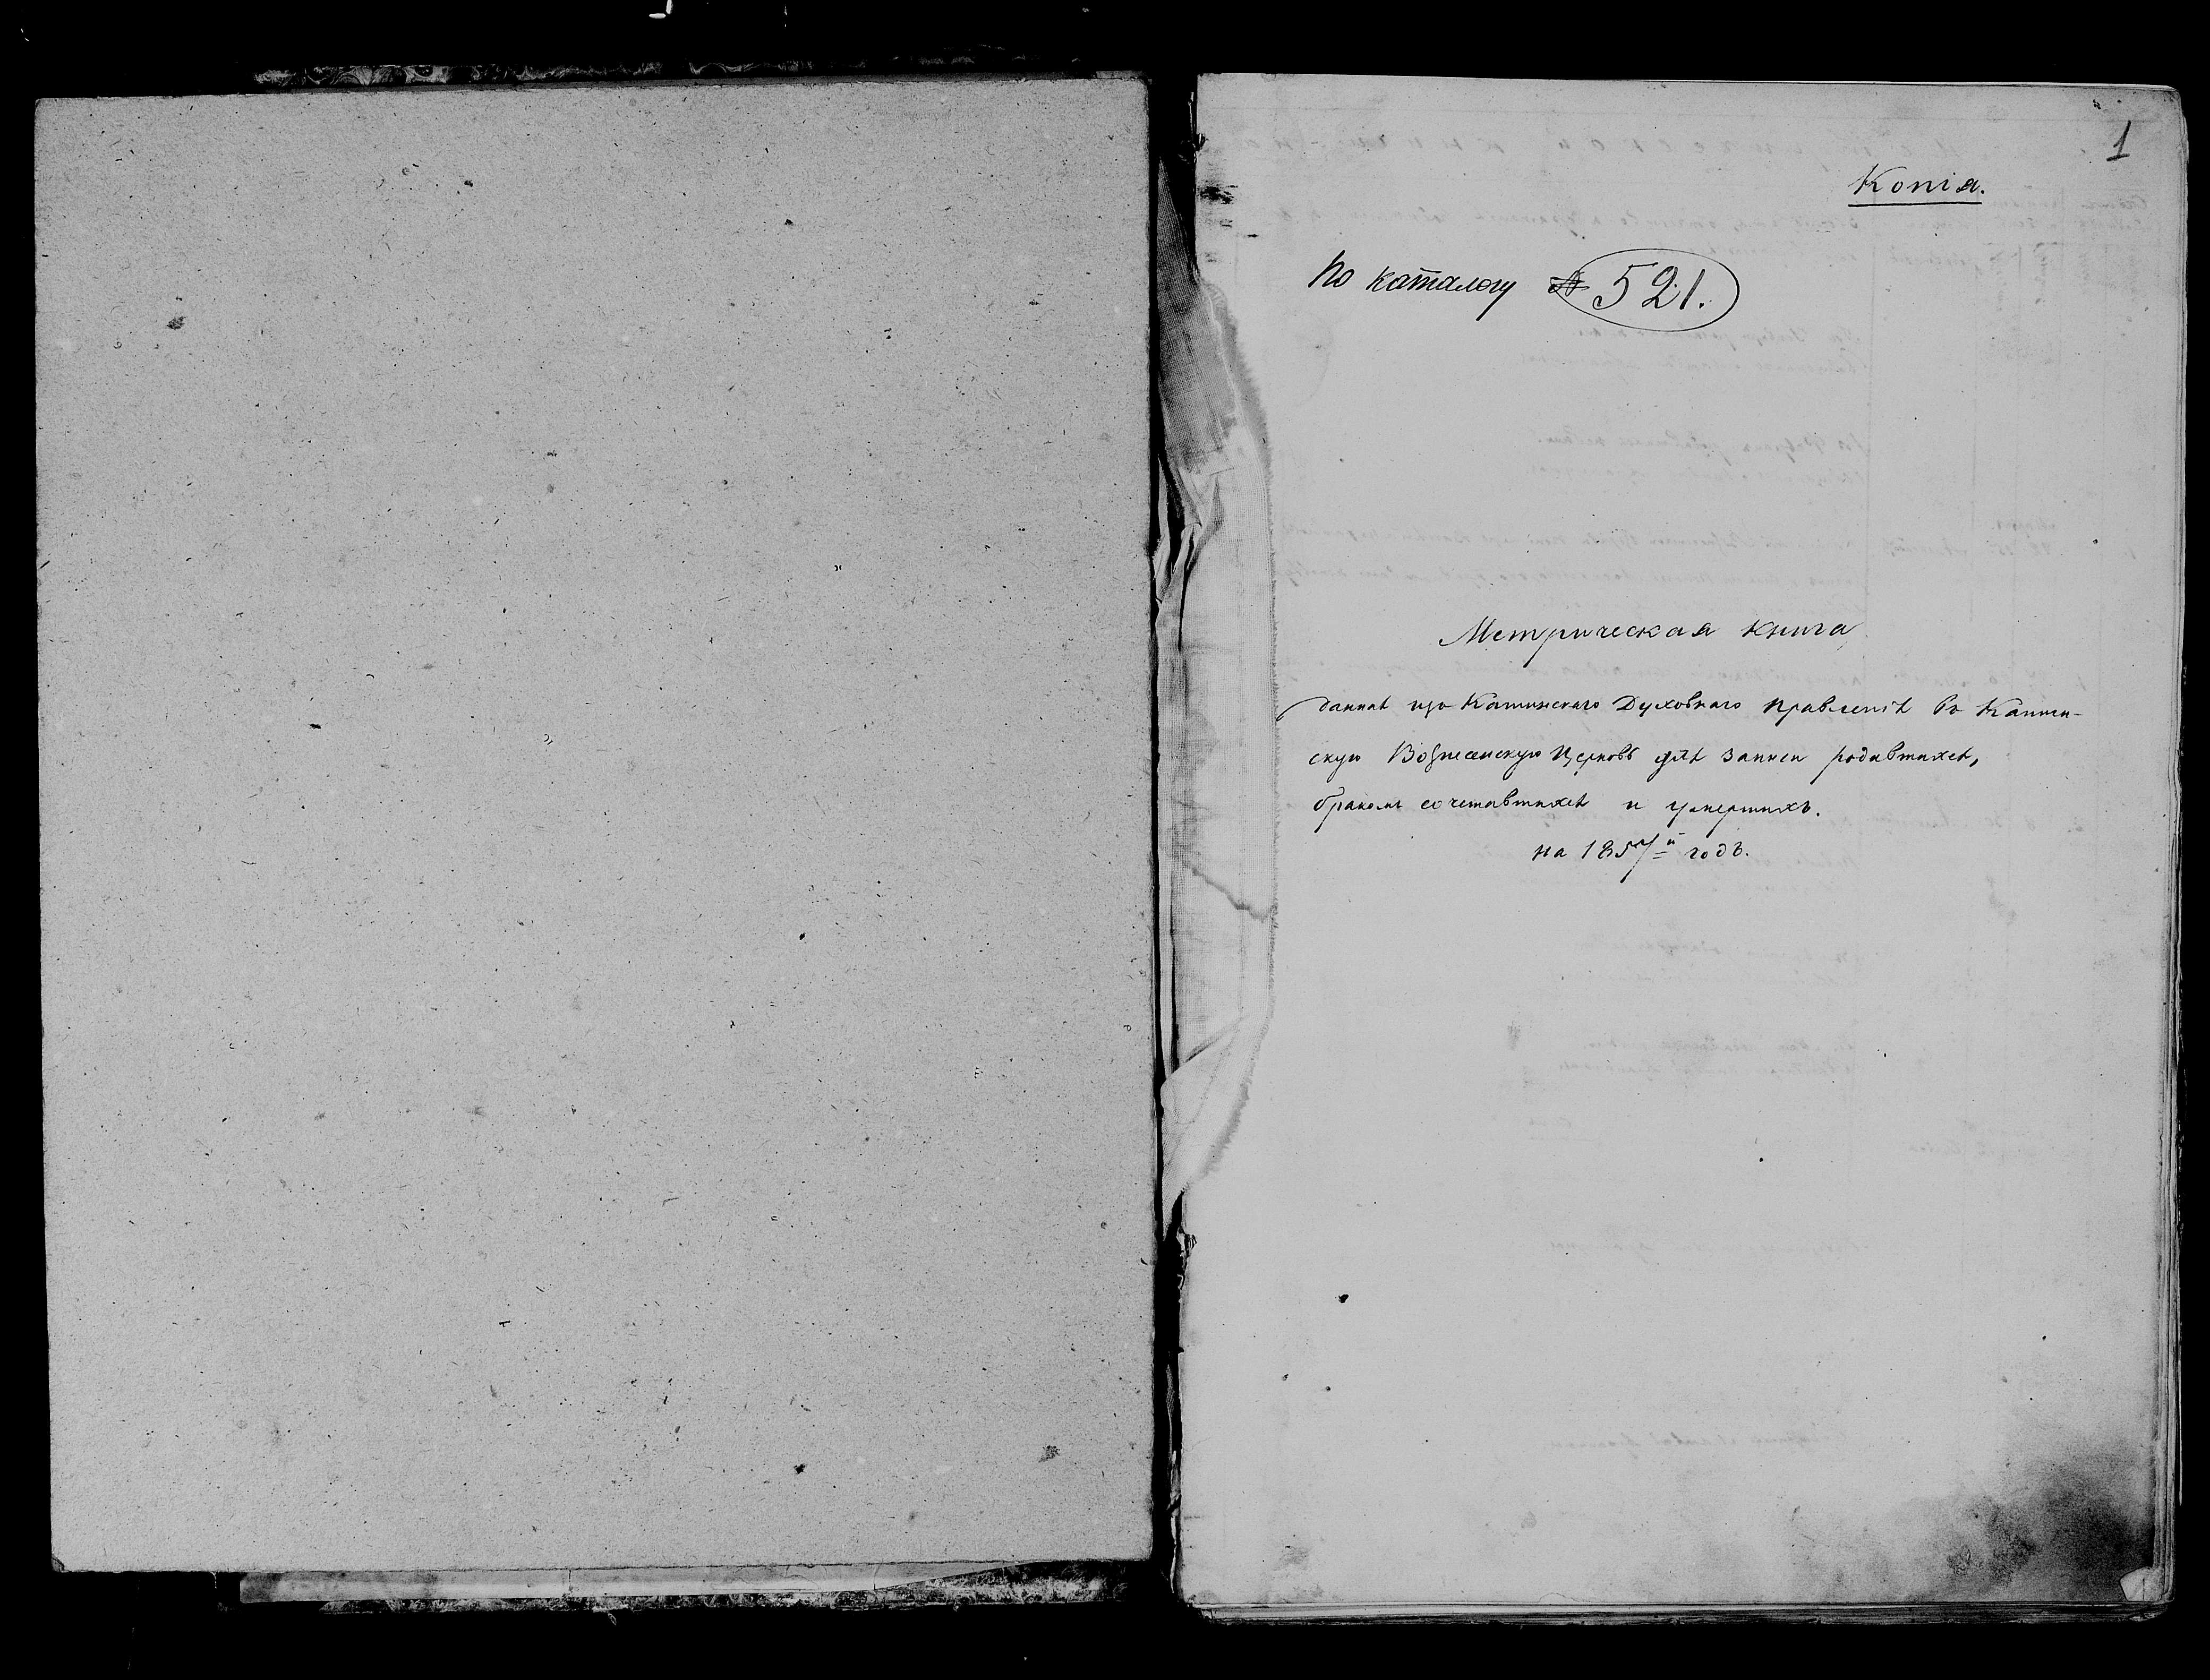 1
Копія.
По каталогу № 521.
Метрическая книга
данная изъ Каинскаго Духовнаго Правленія въ Каин-
скую Вознесенскую Церковь для записи родившихся,
бракомъ сочетавшихся и умершихъ.
на 1857й годъ.